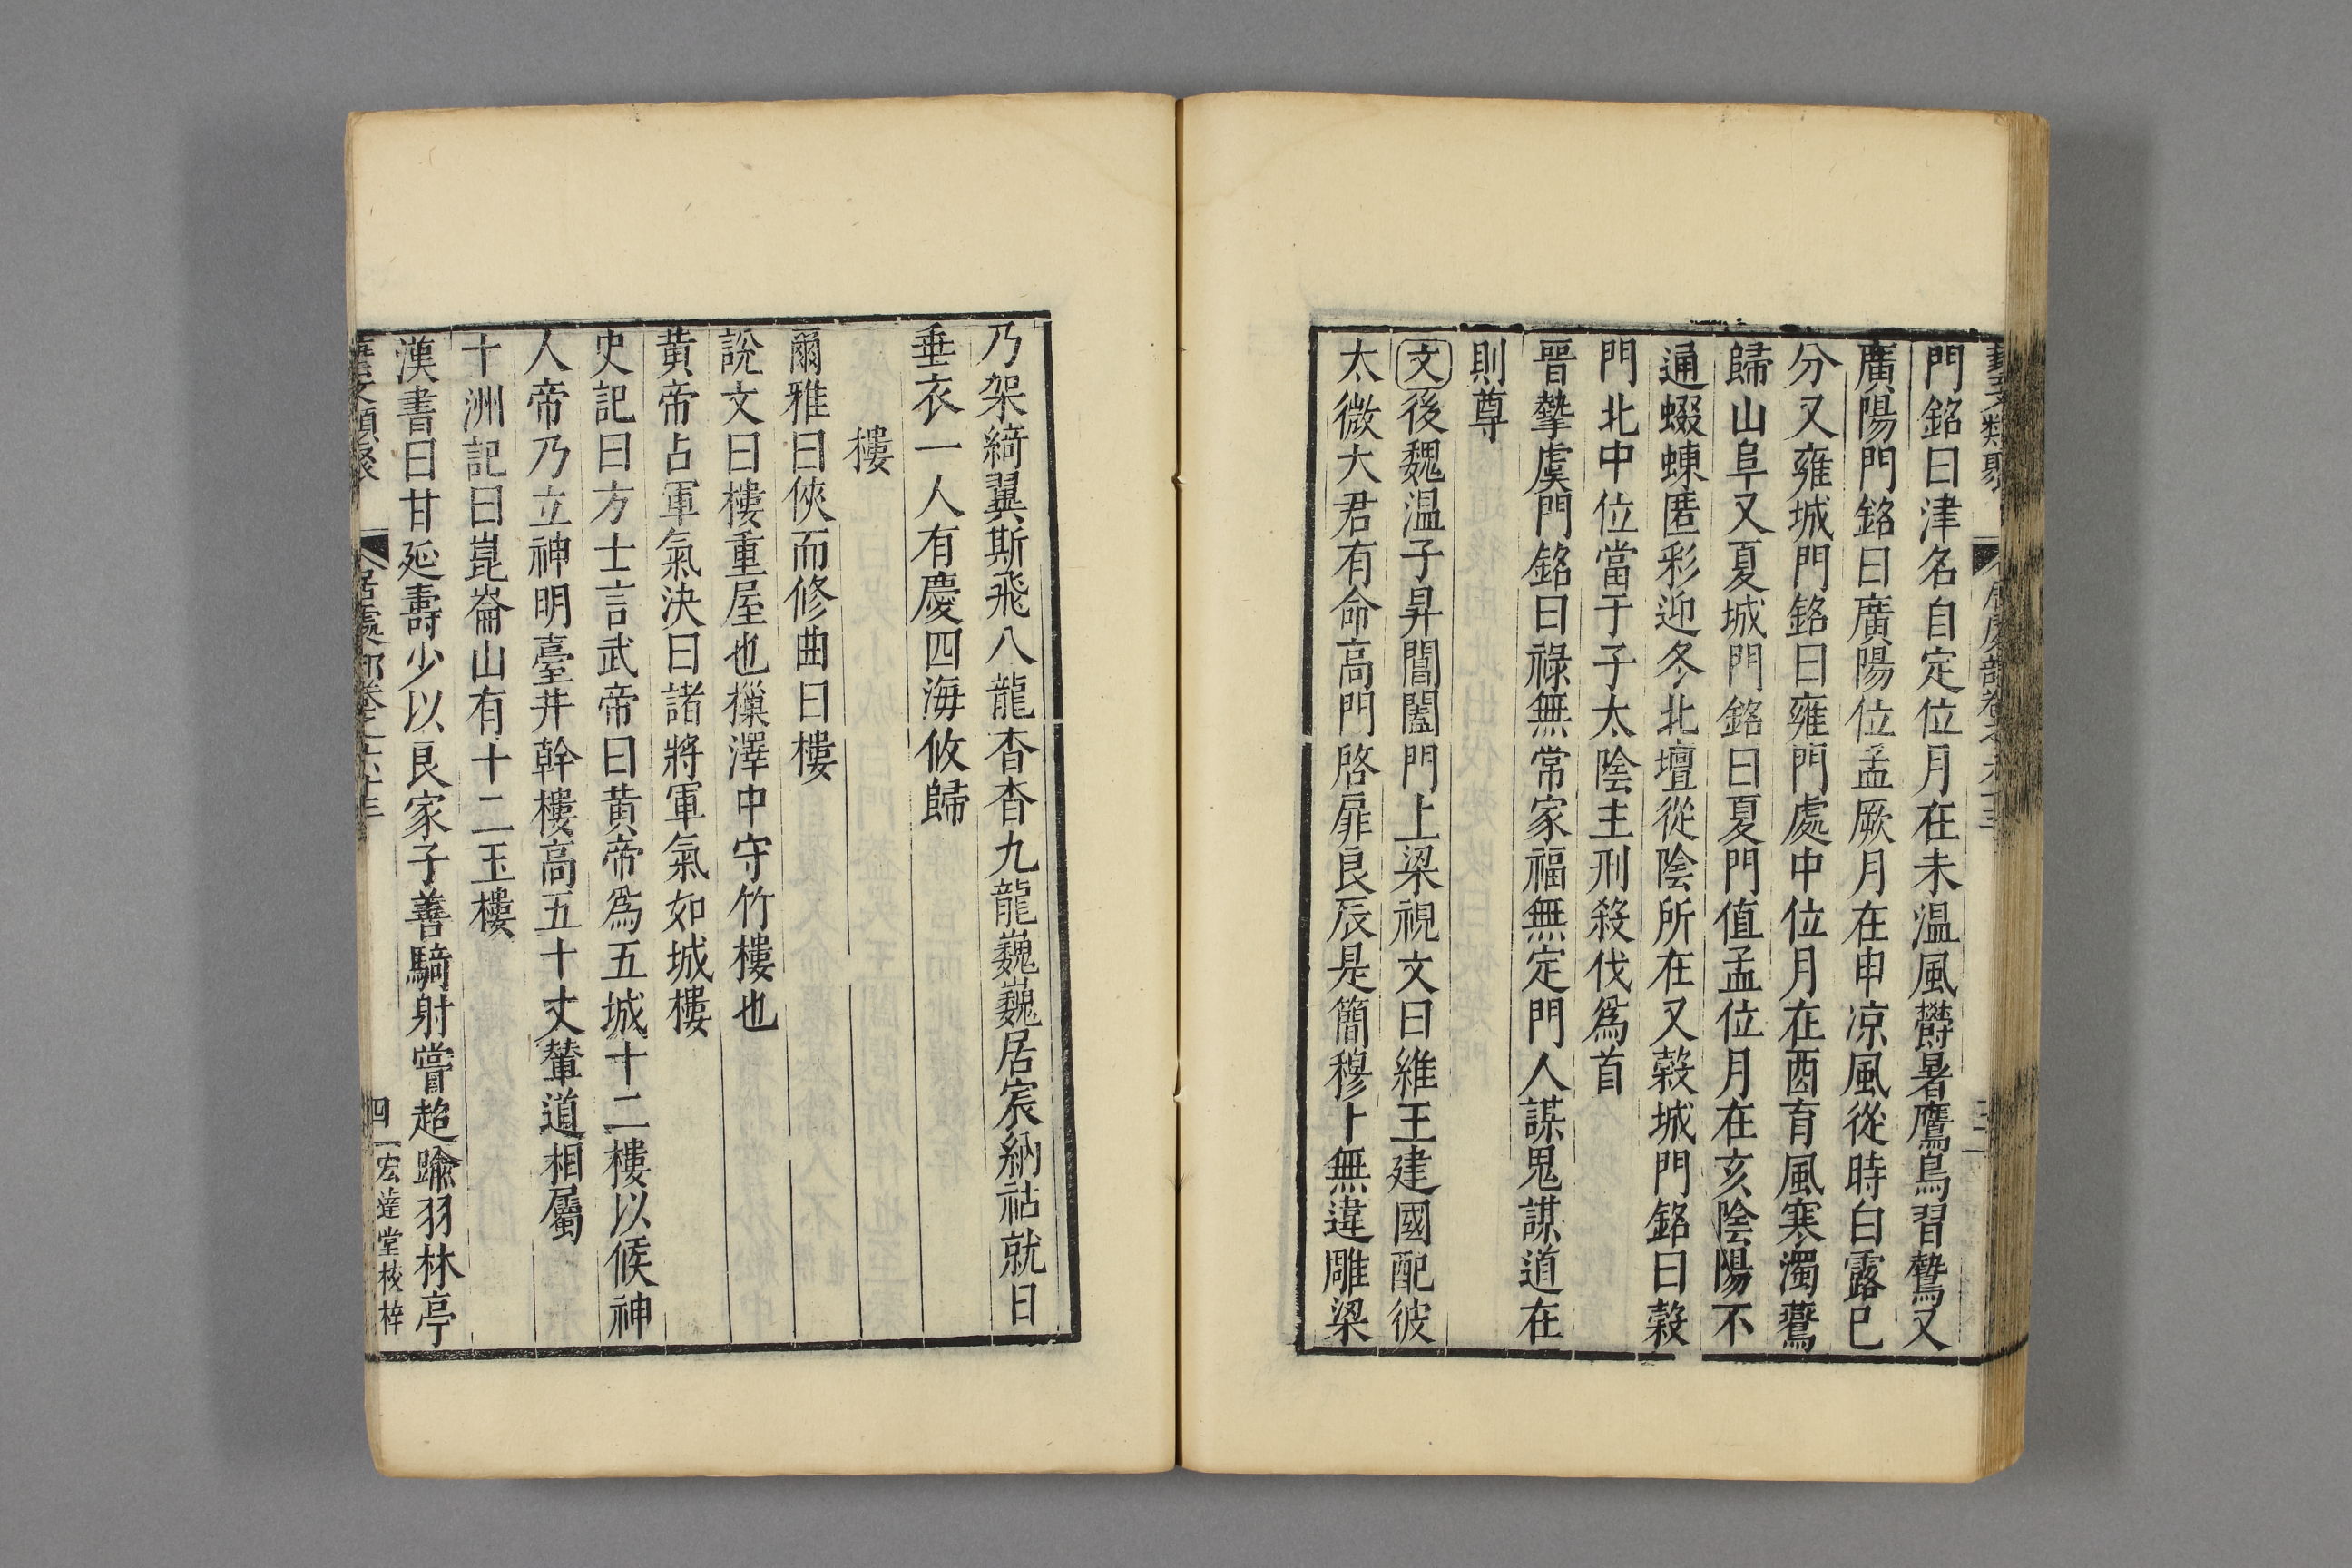 藝文類聚 居處部卷之六十三 三
門銘曰津名自定位月在未温風欝暑鷹鳥習鷙又
廣陽門銘曰廣陽位孟厥月在申凉風從時白露已
分又雍城門銘曰雍門處中位月在酉育風寒濁鴦
歸山阜又夏城門銘曰夏門值孟位月在亥陰陽不
通蝃蝀匿彩迎冬北壇從陰所在又榖城門銘曰榖
門北中位當于子太陰主刑殺伐爲首
晉摯虞門銘曰祿無常家福無定門人謀鬼謀道在
則尊
文後魏温子昇閶闔門上梁視文曰維王建國配彼
太微大君有命高門啓扉良辰是簡穆卜無違雕梁
乃架綺翼斯飛八龍杳杳九龍巍巍居宸納祜就日
垂衣一人有慶四海攸歸
樓
爾雅曰俠而修曲曰樓
說文曰樓重屋也樔澤中守竹樓也
黃帝占軍氣決曰諸將軍氣如城樓
史記曰方士言武帝曰黃帝爲五城十二樓以候神
人帝乃立神明臺井幹樓高五十丈輦道相屬
十洲記曰崑崙山有十二玉樓
漢書曰甘延壽少以良家子善騎射嘗超踰羽林亭
藝文類聚 居處部卷之六十三 四 宏達堂校梓